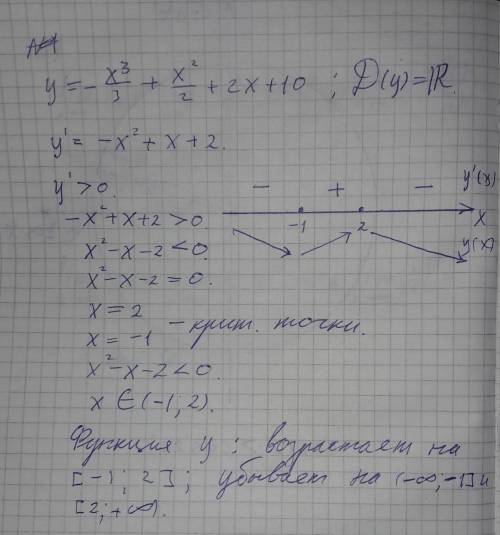 №1
y = -x³/3 + x²/2 + 2x + 10 ; D(y) = ℝ.
y' = -x² + x + 2.
y' > 0.
- + - y'(x)
-x² + x + 2 > 0.
-1 2 x
y(x)
x² - x - 2 < 0.
x² - x - 2 = 0.
x = 2
x = -1 - крит. точки.
x² - x - 2 < 0.
x ∈ (-1; 2).
Функция y : возрастает на
[-1; 2]; убывает на (-∞; -1] и
[2; +∞).